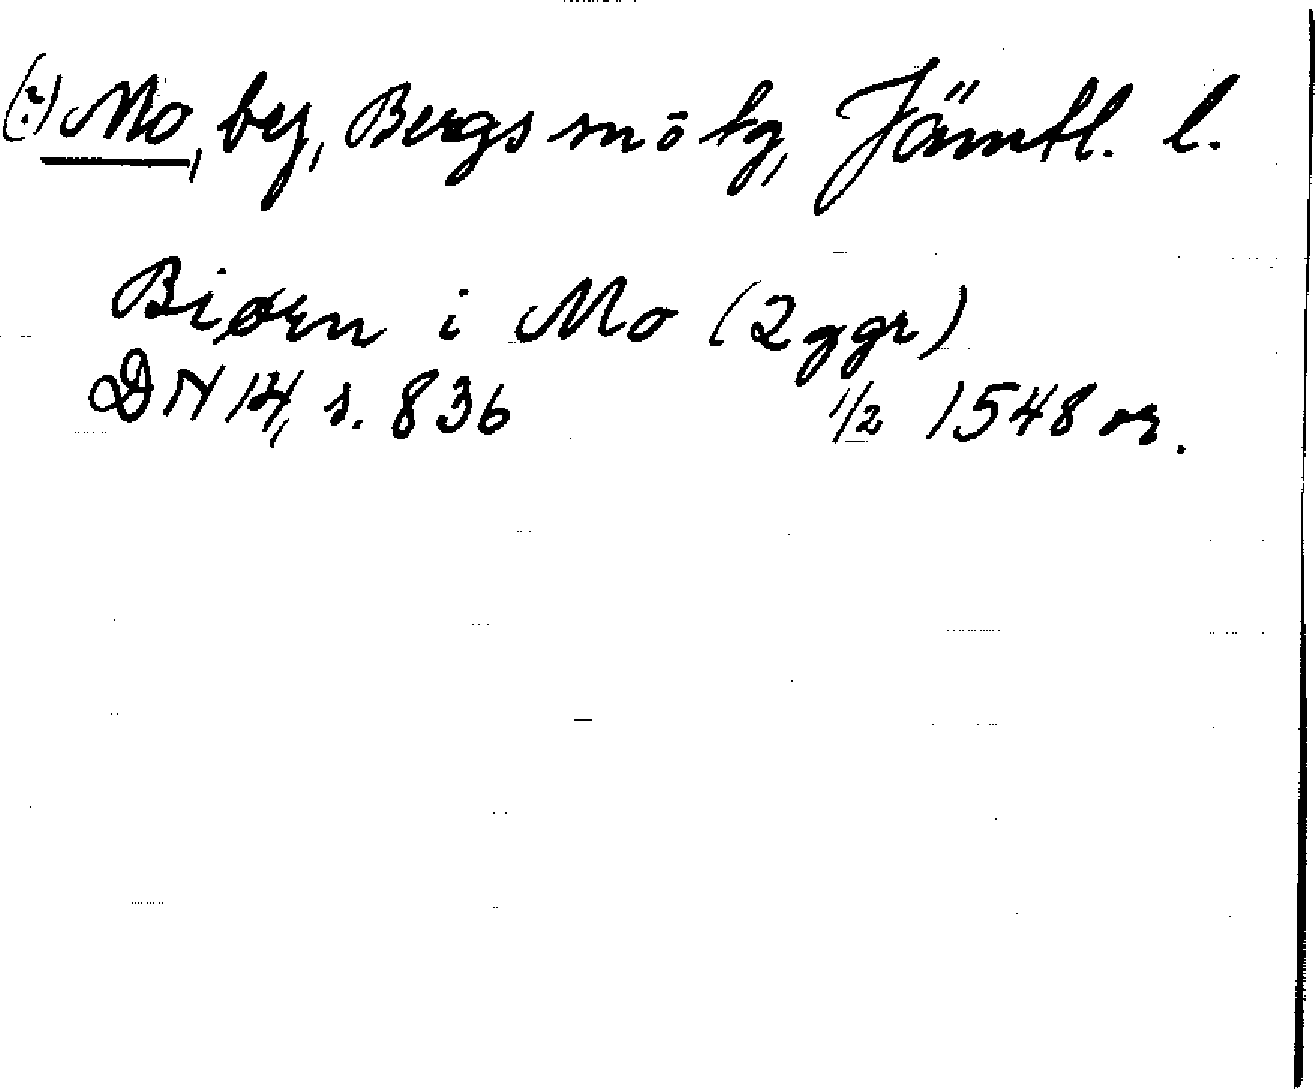 (?) Mo, by, Bergs sn o tg, Jämtl. l.
Biørn i Mo (2 ggr)
DN 14, s. 836 1/2 1548 or.